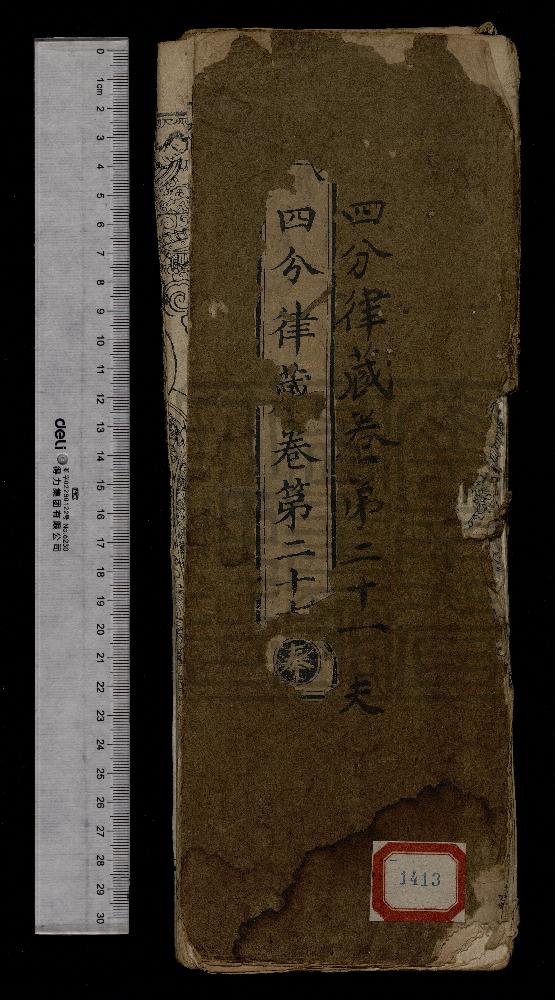 四分律藏卷第二十一 夫
四分律藏 卷第二十
1413
0 1cm 2 3 4 5 6 7 8 9 10 11 12 13 14 15 16 17 18 19 20 21 22 23 24 25 26 27 28 29 30
deli
得力集团有限公司
No.6230